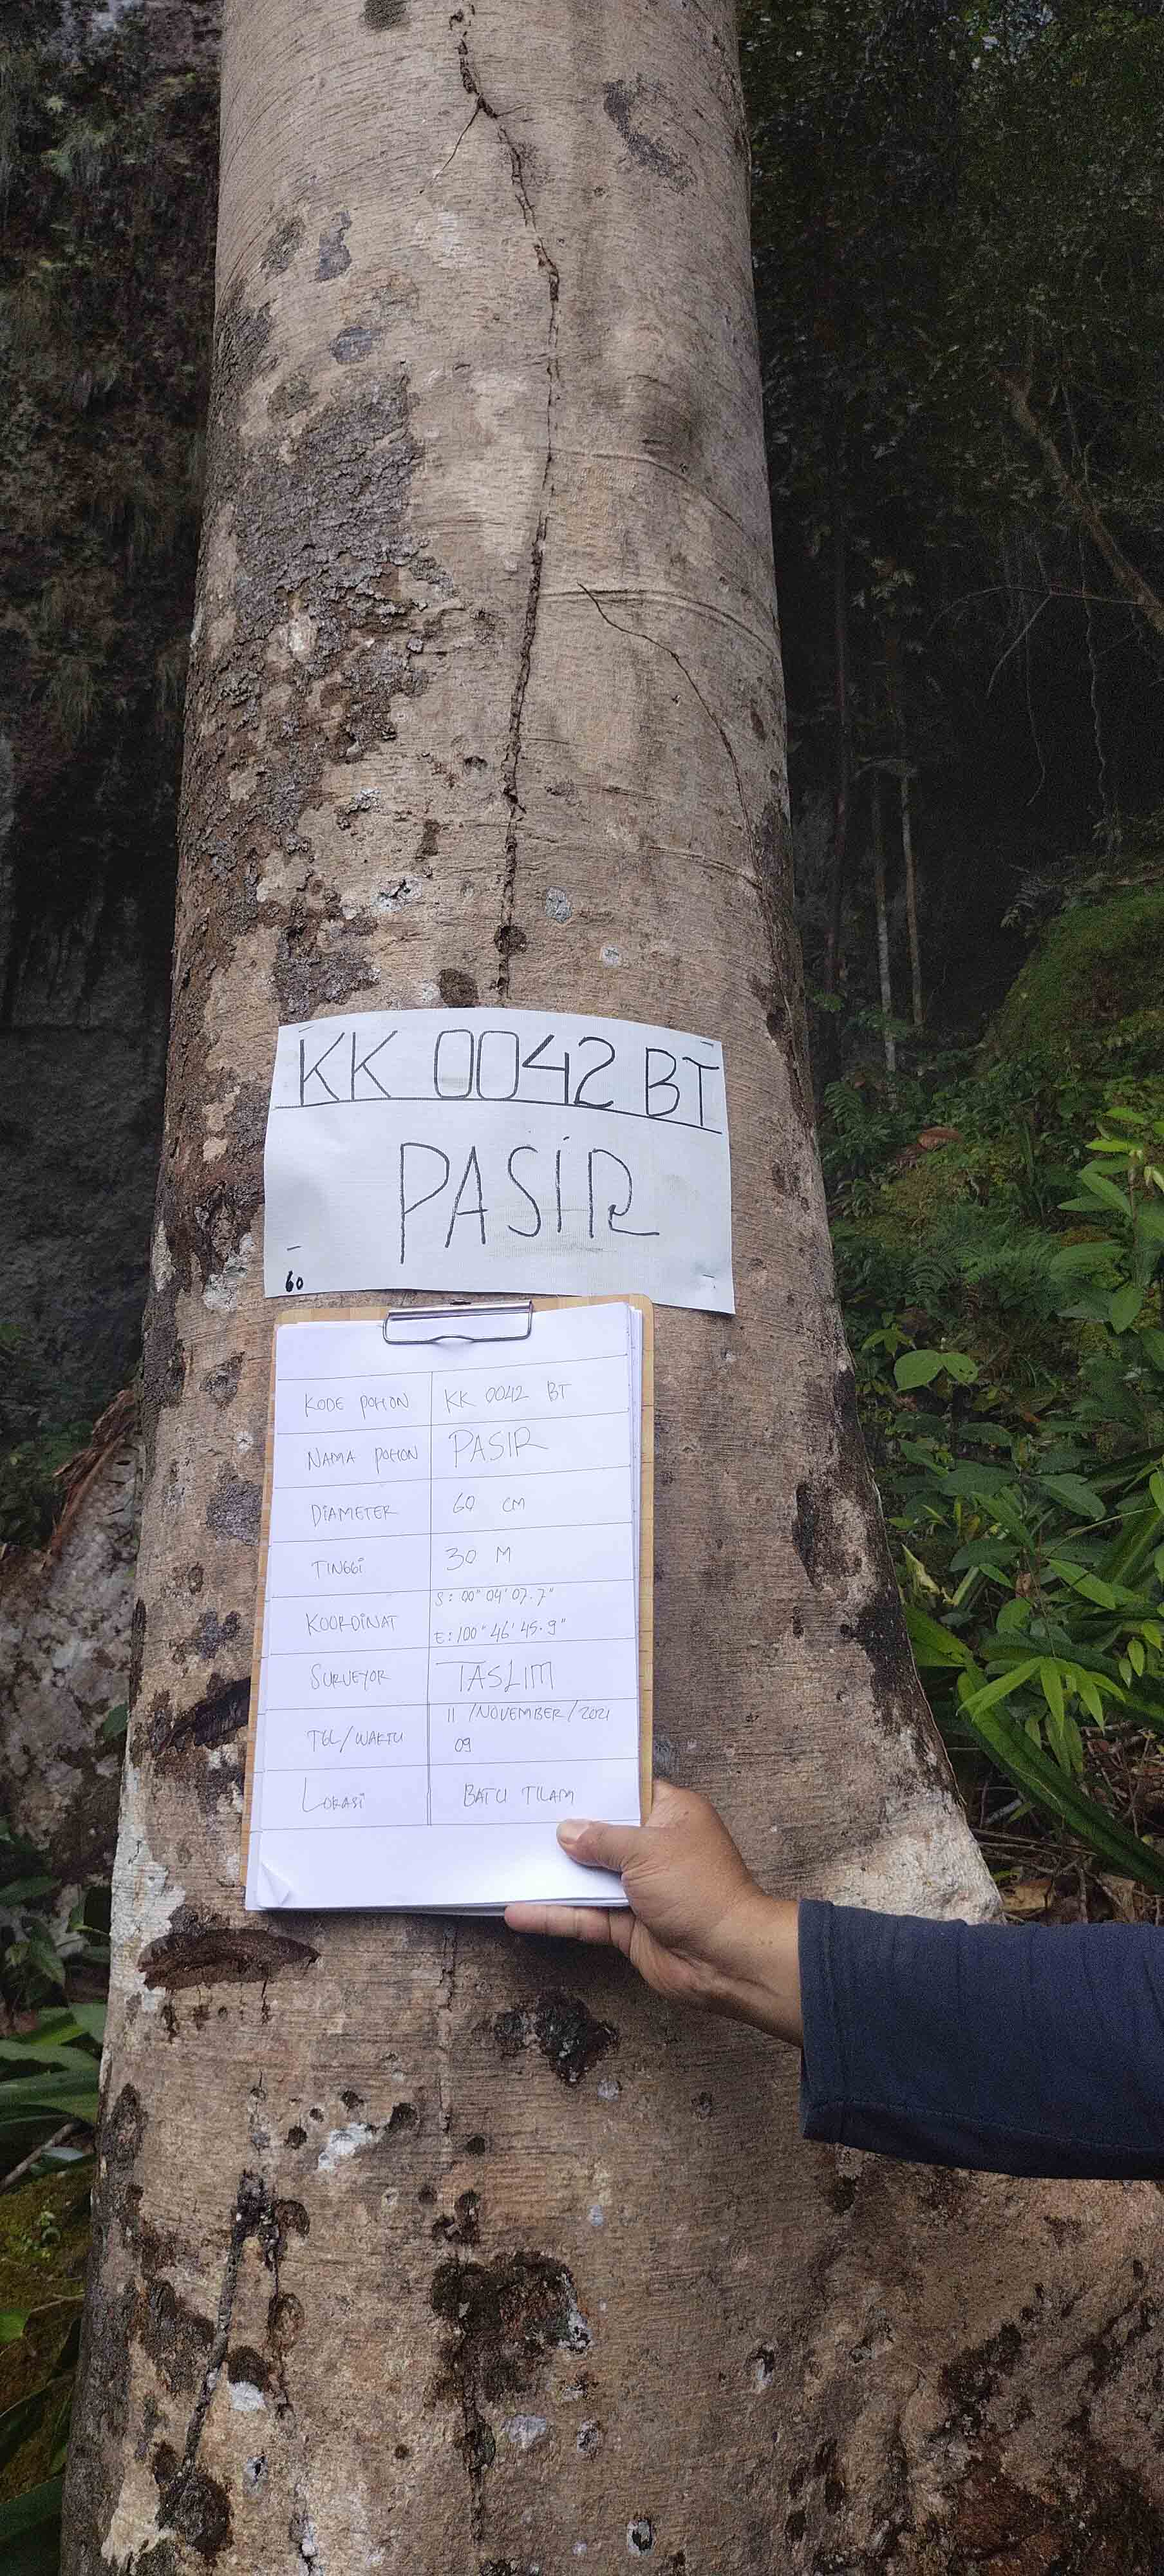 KK 0042 BT
PASiR
60
KODE POHON KK 0042 BT
NAMA POHON PASIR
DiAMETER 60 CM
TINGGi 30 M
KOORDiNAT S: 00° 04' 07.7"
E: 100° 46' 45.9"
SURVEYOR TASLIM
TGL/WAKTU 11 /NOVEMBER/2021
09
LOKASi BATU TILAM